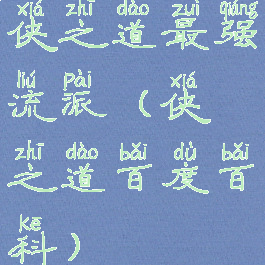 xiá zhī dào zuì qiáng
侠之道最强
liú pài xiá
流派(侠
zhī dào bǎi dù bǎi
之道百度百
kē
科)